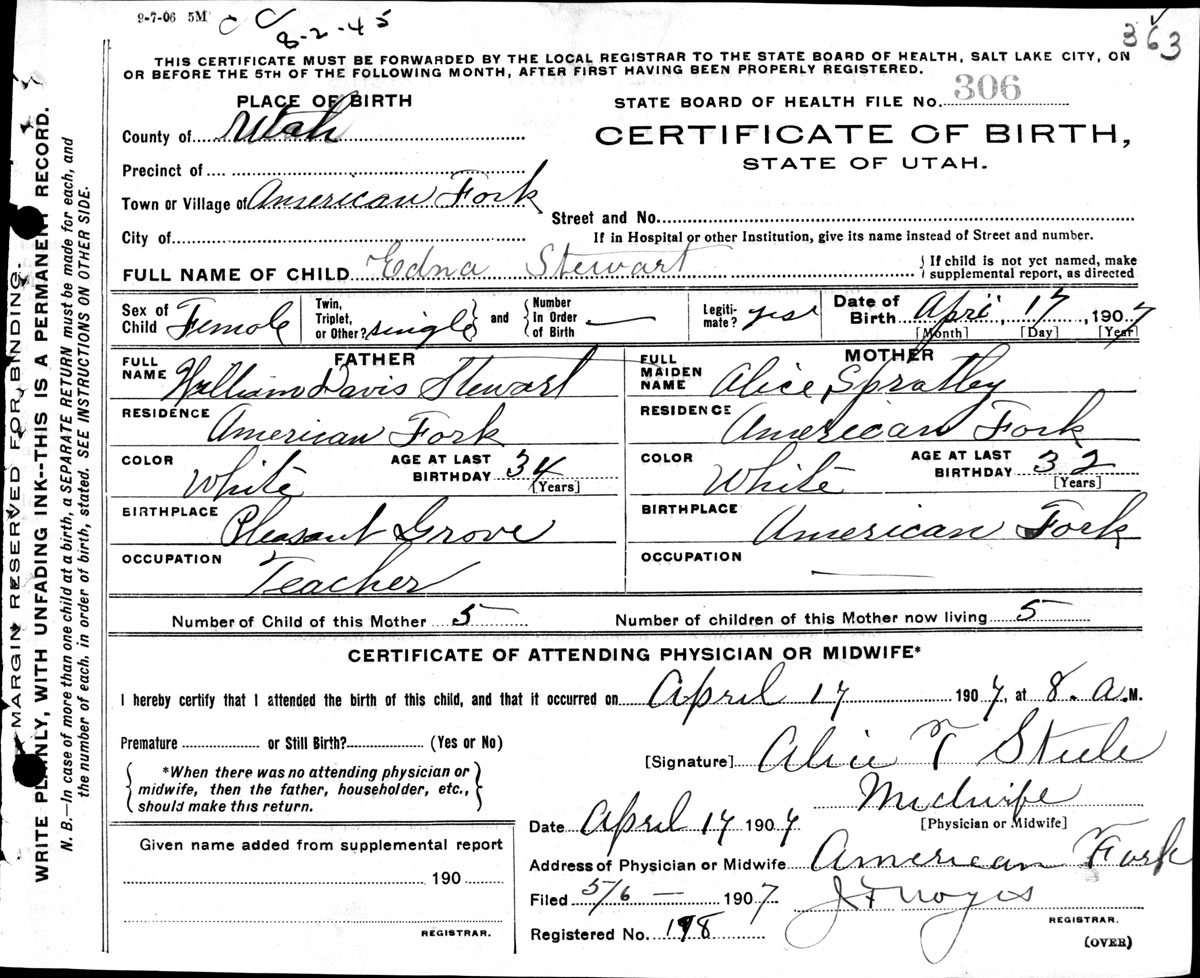 9-7-06 5M
CC
8-2-45
363
THIS CERTIFICATE MUST BE FORWARDED BY THE LOCAL REGISTRAR TO THE STATE BOARD OF HEALTH, SALT LAKE CITY, ON
OR BEFORE THE 5TH OF THE FOLLOWING MONTH, AFTER FIRST HAVING BEEN PROPERLY REGISTERED.
PLACE OF BIRTH
STATE BOARD OF HEALTH FILE No. 306
County of Utah
CERTIFICATE OF BIRTH,
STATE OF UTAH.
Precinct of
Town or Village of American Fork
Street and No.
City of
If in Hospital or other Institution, give its name instead of Street and number.
FULL NAME OF CHILD Edna Stewart
{ If child is not yet named, make
supplemental report, as directed
Sex of Child Female
Twin, Triplet, or Other? single } and { Number In Order of Birth —
Legiti-mate? yes
Date of Birth April, 17, 1907
[Month] [Day] [Year]
FATHER
FULL NAME William Davis Stewart
RESIDENCE American Fork
COLOR White AGE AT LAST BIRTHDAY 34
[Years]
BIRTHPLACE Pleasant Grove
OCCUPATION Teacher
MOTHER
FULL MAIDEN NAME Alice Spratley
RESIDENCE American Fork
COLOR White AGE AT LAST BIRTHDAY 32
[Years]
BIRTHPLACE American Fork
OCCUPATION —
Number of Child of this Mother 5 Number of children of this Mother now living 5
CERTIFICATE OF ATTENDING PHYSICIAN OR MIDWIFE*
I hereby certify that I attended the birth of this child, and that it occurred on April 17 1907, at 8. A. M.
Premature or Still Birth? (Yes or No)
[Signature] Alice T Steele
{ *When there was no attending physician or
midwife, then the father, householder, etc.,
should make this return. }
Midwife
[Physician or Midwife]
Date April 17 1907
Given name added from supplemental report
190
REGISTRAR.
Address of Physician or Midwife American Fork
Filed 5/6 — 1907 J F Noyes
REGISTRAR.
Registered No. 198
(OVER)
MARGIN RESERVED FOR BINDING.
WRITE PLAINLY, WITH UNFADING INK--THIS IS A PERMANENT RECORD.
N. B.—In case of more than one child at a birth, a SEPARATE RETURN must be made for each, and
the number of each, in order of birth, stated. SEE INSTRUCTIONS ON OTHER SIDE.